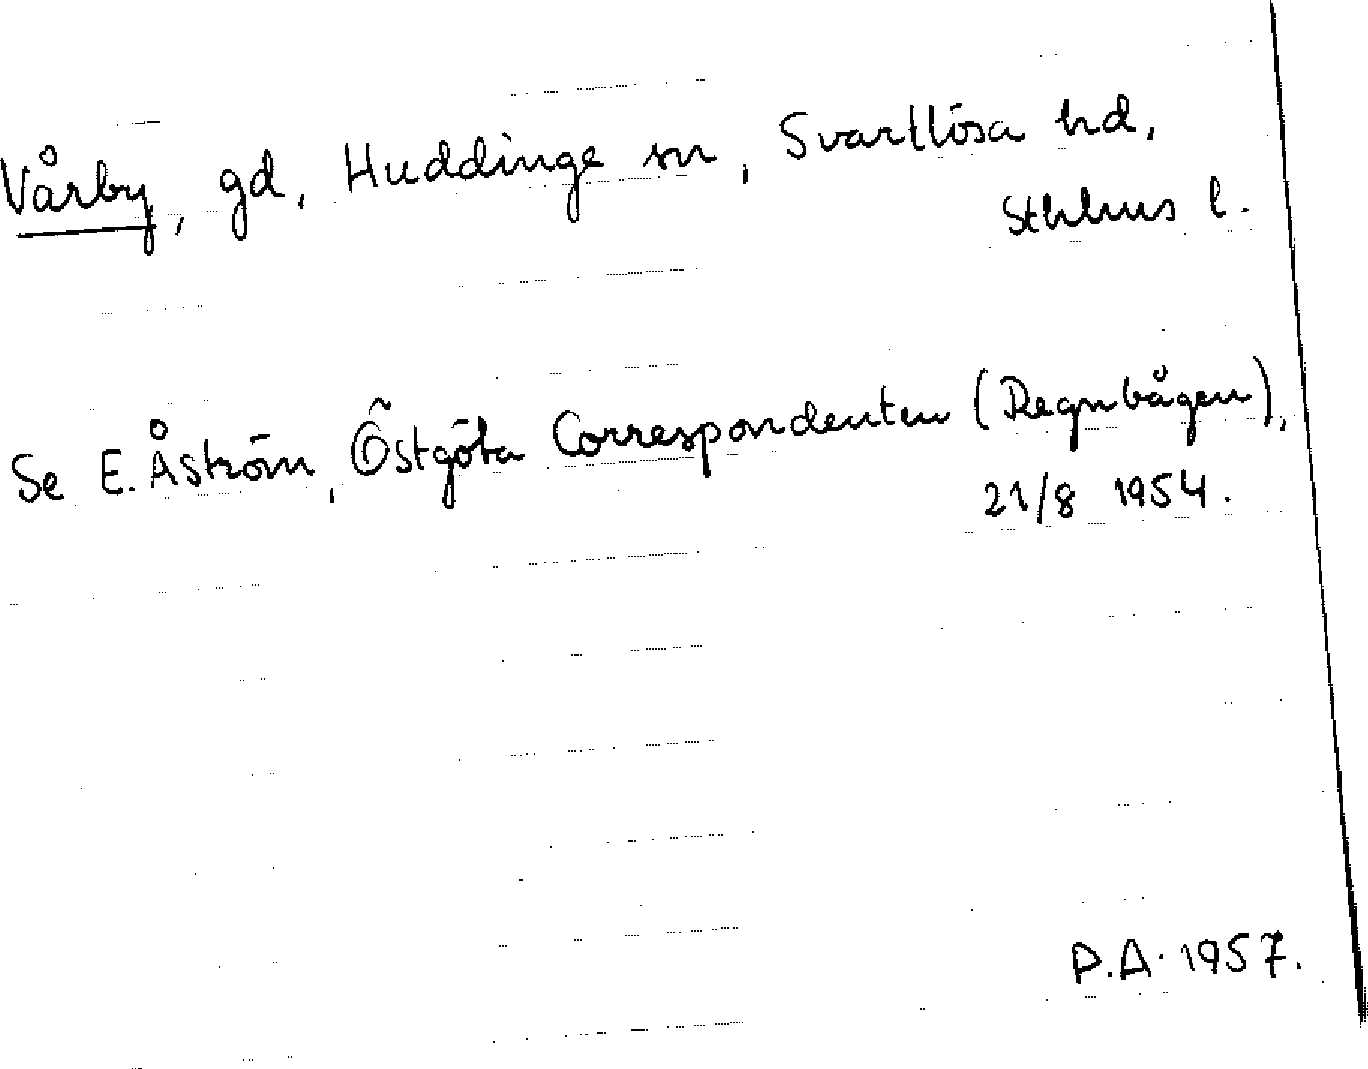 Vårby, gd, Huddinge sn, Svartlösa hd,
Sthlms l.
Se E. Åström, Östgöta Correspondenten (Regnbågen),
21/8 1954.
P.A. 1957.